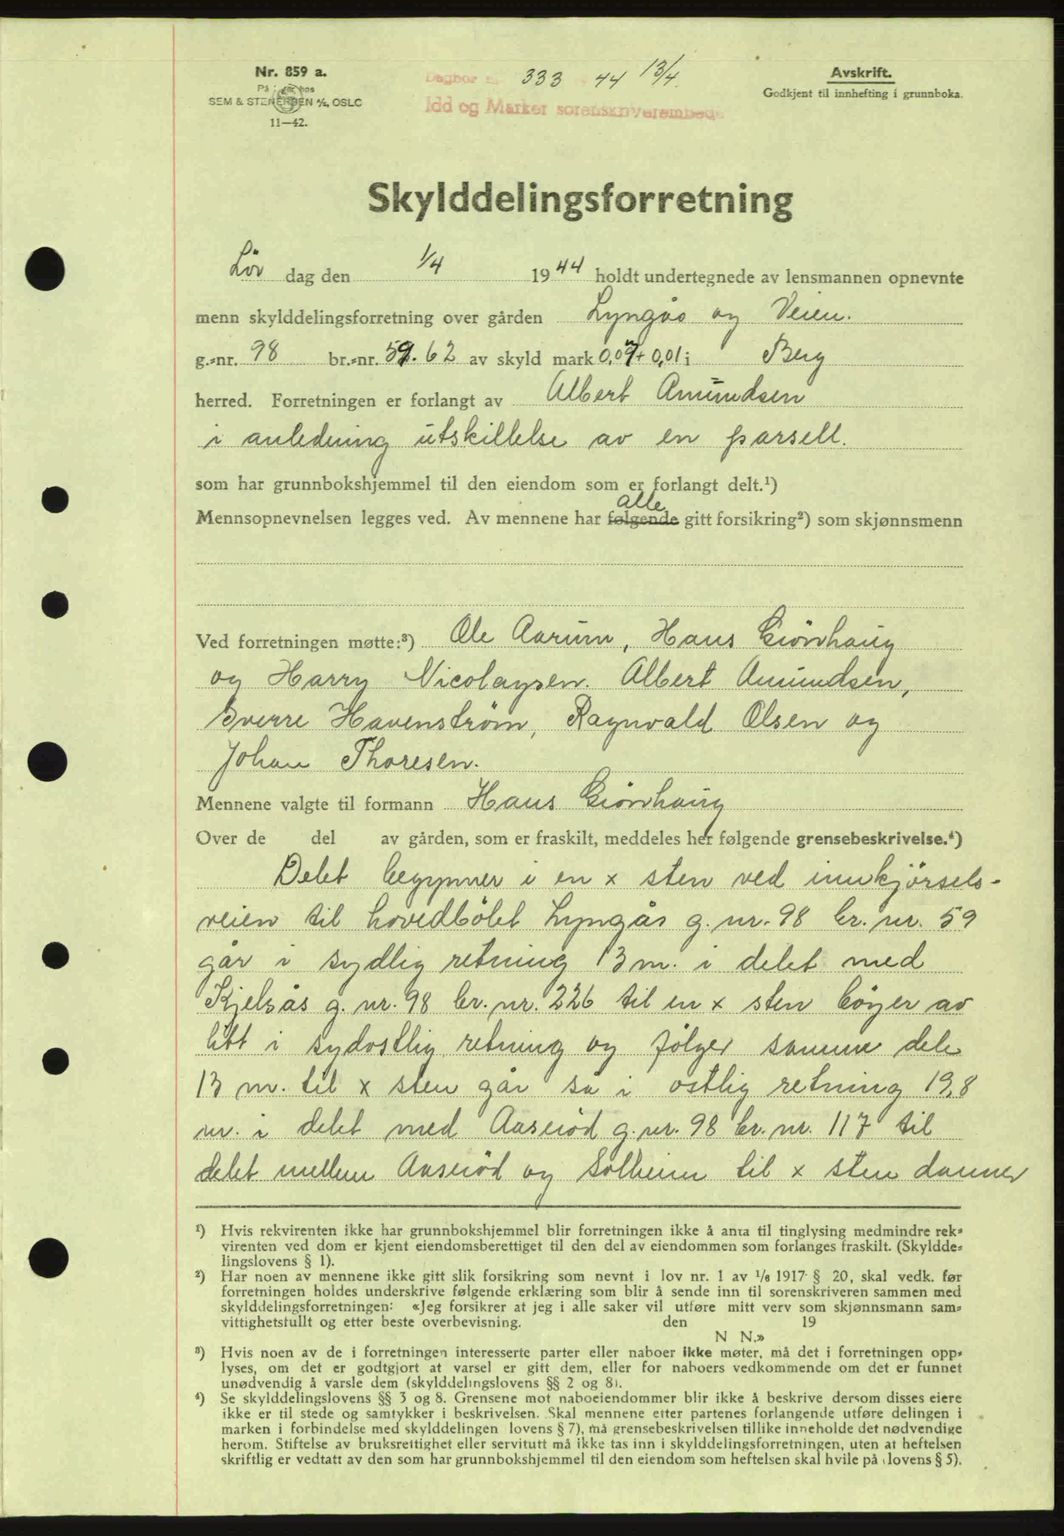 Nr. 859 a.
SEM & STENERSEN A/S, OSLO
11—42.
Dagbok nr. 333 - 44 13/4.
Idd og Marker sorenskriverembede
Avskrift.
Godkjent til innhefting i grunnboka.
Skylddelingsforretning
Lör dag den 1/4 1944 holdt undertegnede av lensmannen opnevnte
menn skylddelingsforretning over gården Lyngås og Veien.
g.-nr. 98 br.-nr. 59.62 av skyld mark 0,07+0,01 i Berg
herred. Forretningen er forlangt av Albert Amundsen
i anledning utskillelse av en parsell.
som har grunnbokshjemmel til den eiendom som er forlangt delt.¹)
alle
Mennsopnevnelsen legges ved. Av mennene har følgende gitt forsikring²) som skjønnsmenn
Ved forretningen møtte:³) Ole Aarum, Hans Grönhaug
og Harry Nicolaysen. Albert Amundsen,
Sverre Havenström, Ragnvald Olsen og
Johan Thoresen.
Mennene valgte til formann Hans Grönhaug
Over de del av gården, som er fraskilt, meddeles her følgende grensebeskrivelse.⁴)
Delet begynner i en x sten ved innkjörsels-
veien til hovedbölet Lyngås g. nr. 98 br. nr. 59
går i sydlig retning 13 m. i delet med
Kjelsås g. nr. 98 br. nr. 226 til en x sten böyer av
litt i sydostlig retning og fölger samme dele
13 m. til x sten går så i ostlig retning 19,8
m. i delet med Aaseröd g. nr. 98 br. nr. 117 til
delet mellem Aaseröd og Solheim til x sten danner
¹) Hvis rekvirenten ikke har grunnbokshjemmel blir forretningen ikke å anta til tinglysing medmindre rek-
virenten ved dom er kjent eiendomsberettiget til den del av eiendommen som forlanges fraskilt. (Skyldde-
lingslovens § 1).
²) Har noen av mennene ikke gitt slik forsikring som nevnt i lov nr. 1 av 1/6 1917 § 20, skal vedk. før
forretningen holdes underskrive følgende erklæring som blir å sende inn til sorenskriveren sammen med
skylddelingsforretningen: «Jeg forsikrer at jeg i alle saker vil utføre mitt verv som skjønnsmann sam-
vittighetsfullt og etter beste overbevisning. den 19
N N.»
³) Hvis noen av de i forretningen interesserte parter eller naboer ikke møter, må det i forretningen opp-
lyses, om det er godtgjort at varsel er gitt dem, eller for naboers vedkommende om det er funnet
unødvendig å varsle dem (skylddelingslovens §§ 2 og 8).
⁴) Se skylddelingslovens §§ 3 og 8. Grensene mot naboeiendommer blir ikke å beskrive dersom disses eiere
ikke er til stede og samtykker i beskrivelsen. Skal mennene etter partenes forlangende utføre delingen i
marken i forbindelse med skylddelingen lovens § 7), må grensebeskrivelsen tillike inneholde det nødvendige
herom. Stiftelse av bruksrettighet eller servitutt må ikke tas inn i skylddelingsforretningen, uten at heftelsen
skriftlig er vedtatt av den som har grunnbokshjemmel til den eiendom som heftelsen skal hvile på lovens § 5).